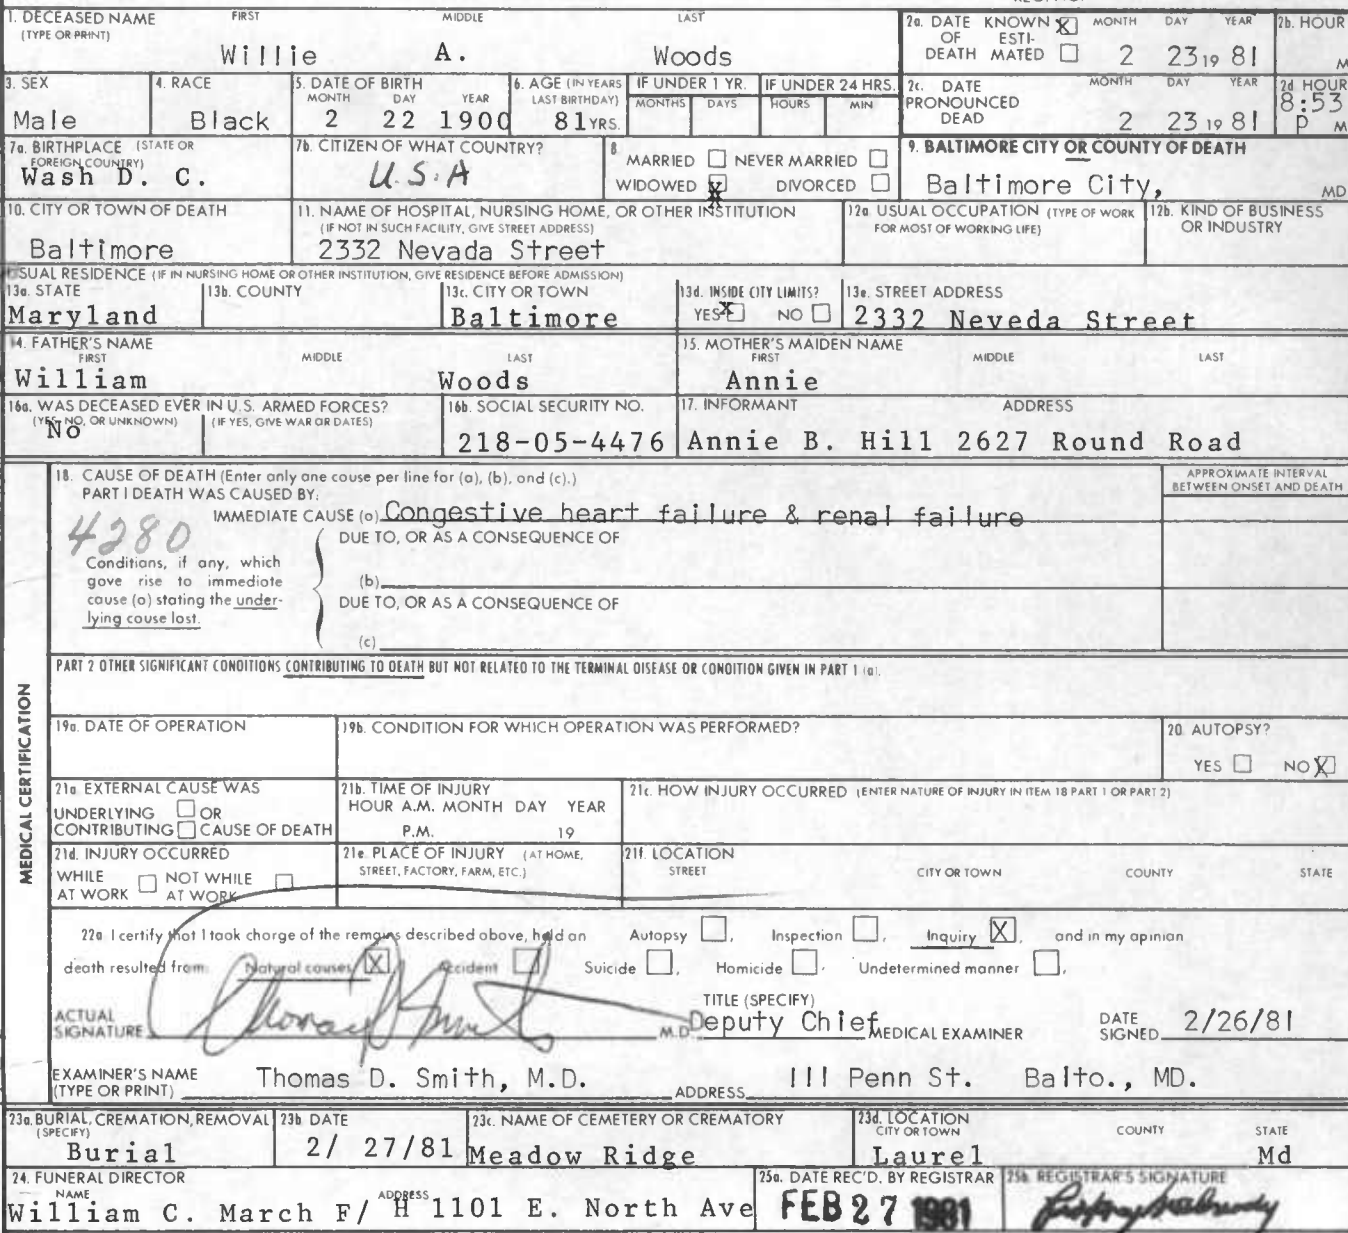 1. DECEASED NAME FIRST MIDDLE LAST
(TYPE OR PRINT)
Willie A. Woods
2a. DATE OF DEATH KNOWN X ESTIMATED MONTH DAY YEAR
2 23 19 81
2b. HOUR
M
3. SEX
Male
4. RACE
Black
5. DATE OF BIRTH
MONTH DAY YEAR
2 22 1900
6. AGE (IN YEARS LAST BIRTHDAY)
81 YRS.
IF UNDER 1 YR.
MONTHS DAYS
IF UNDER 24 HRS.
HOURS MIN
2c. DATE PRONOUNCED DEAD
MONTH DAY YEAR
2 23 19 81
2d HOUR
8:53
P M
7a. BIRTHPLACE (STATE OR FOREIGN COUNTRY)
Wash D. C.
7b. CITIZEN OF WHAT COUNTRY?
U.S.A
8
MARRIED NEVER MARRIED
WIDOWED X DIVORCED
9. BALTIMORE CITY OR COUNTY OF DEATH
Baltimore City, MD
10. CITY OR TOWN OF DEATH
Baltimore
11. NAME OF HOSPITAL, NURSING HOME, OR OTHER INSTITUTION
(IF NOT IN SUCH FACILITY, GIVE STREET ADDRESS)
2332 Nevada Street
12a. USUAL OCCUPATION (TYPE OF WORK FOR MOST OF WORKING LIFE)
12b. KIND OF BUSINESS OR INDUSTRY
USUAL RESIDENCE (IF IN NURSING HOME OR OTHER INSTITUTION, GIVE RESIDENCE BEFORE ADMISSION)
13a. STATE
Maryland
13b. COUNTY
13c. CITY OR TOWN
Baltimore
13d. INSIDE CITY LIMITS?
YES X NO
13e. STREET ADDRESS
2332 Neveda Street
14. FATHER'S NAME
FIRST MIDDLE LAST
William Woods
15. MOTHER'S MAIDEN NAME
FIRST MIDDLE LAST
Annie
16a. WAS DECEASED EVER IN U.S. ARMED FORCES?
(YES, NO, OR UNKNOWN) (IF YES, GIVE WAR OR DATES)
No
16b. SOCIAL SECURITY NO.
218-05-4476
17. INFORMANT ADDRESS
Annie B. Hill 2627 Round Road
MEDICAL CERTIFICATION
18. CAUSE OF DEATH (Enter only one cause per line for (a), (b), and (c).)
PART I DEATH WAS CAUSED BY:
APPROXIMATE INTERVAL
BETWEEN ONSET AND DEATH
IMMEDIATE CAUSE (a) Congestive heart failure & renal failure
4280
DUE TO, OR AS A CONSEQUENCE OF
Conditions, if any, which
gave rise to immediate
cause (a) stating the under-
lying cause last.
(b)
DUE TO, OR AS A CONSEQUENCE OF
(c)
PART 2 OTHER SIGNIFICANT CONDITIONS CONTRIBUTING TO DEATH BUT NOT RELATED TO THE TERMINAL DISEASE OR CONDITION GIVEN IN PART 1 (a).
19a. DATE OF OPERATION
19b. CONDITION FOR WHICH OPERATION WAS PERFORMED?
20. AUTOPSY?
YES NO X
21a EXTERNAL CAUSE WAS
UNDERLYING OR
CONTRIBUTING CAUSE OF DEATH
21b. TIME OF INJURY
HOUR A.M. MONTH DAY YEAR
P.M. 19
21c. HOW INJURY OCCURRED (ENTER NATURE OF INJURY IN ITEM 18 PART 1 OR PART 2)
21d. INJURY OCCURRED
WHILE AT WORK NOT WHILE AT WORK
21e PLACE OF INJURY (AT HOME, STREET, FACTORY, FARM, ETC.)
21f. LOCATION
STREET CITY OR TOWN COUNTY STATE
22a I certify that I took charge of the remains described above, held an Autopsy , Inspection , Inquiry X , and in my opinion
death resulted from: Natural causes X Accident Suicide , Homicide , Undetermined manner ,
ACTUAL
SIGNATURE Thomas D Smith M.D.
TITLE (SPECIFY)
Deputy Chief MEDICAL EXAMINER
DATE
SIGNED 2/26/81
EXAMINER'S NAME
(TYPE OR PRINT) Thomas D. Smith, M.D. ADDRESS 111 Penn St. Balto., MD.
23a. BURIAL, CREMATION, REMOVAL
(SPECIFY)
Burial
23b. DATE
2/ 27/81
23c. NAME OF CEMETERY OR CREMATORY
Meadow Ridge
23d. LOCATION
CITY OR TOWN COUNTY STATE
Laurel Md
24. FUNERAL DIRECTOR
NAME ADDRESS
William C. March F/ H 1101 E. North Ave
25a. DATE REC'D. BY REGISTRAR
FEB 27 1981
25b. REGISTRAR'S SIGNATURE